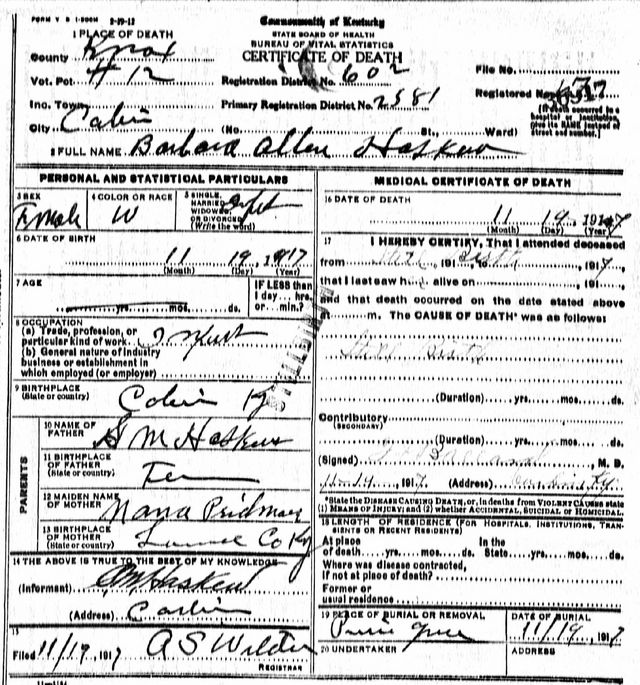 FORM V S 1-500M 2-19-12
Commonwealth of Kentucky
STATE BOARD OF HEALTH
BUREAU OF VITAL STATISTICS
CERTIFICATE OF DEATH
1 PLACE OF DEATH
County Knox
Vot. Pct. #12
Inc. Town
City Corbin (No. St., Ward)
Registration District No. 602
Primary Registration District No. 2581
File No.
Registered No.
(If death occurred in a hospital or institution, give its NAME instead of street and number.)
2 FULL NAME Barbara Allen Haskew
PERSONAL AND STATISTICAL PARTICULARS
3 SEX Female
4 COLOR OR RACE W
5 SINGLE, MARRIED, WIDOWED, OR DIVORCED (Write the word) Infant
6 DATE OF BIRTH
11 19 1917
(Month) (Day) (Year)
7 AGE
yrs. mos. ds.
IF LESS than 1 day... hrs. or... min.?
8 OCCUPATION
(a) Trade, profession, or particular kind of work Infant
(b) General nature of industry business or establishment in which employed (or employer)
STILLBIRTH
9 BIRTHPLACE
(State or country) Corbin Ky
PARENTS
10 NAME OF FATHER G M Haskew
11 BIRTHPLACE OF FATHER (State or country) Tenn
12 MAIDEN NAME OF MOTHER Nana Pridmore
13 BIRTHPLACE OF MOTHER (State or country) Laurel Co Ky
14 THE ABOVE IS TRUE TO THE BEST OF MY KNOWLEDGE
(Informant) G M Haskew
(Address) Corbin
15
Filed 11/19, 1917 A S Wilder
REGISTRAR
MEDICAL CERTIFICATE OF DEATH
16 DATE OF DEATH
11 19 1917
(Month) (Day) (Year)
17 I HEREBY CERTIFY, That I attended deceased
from Still, 191 to Birth, 1917,
that I last saw h alive on, 191,
and that death occurred on the date stated above
m. The CAUSE OF DEATH* was as follows:
Still Birth
(Duration) yrs. mos. ds.
Contributory
(SECONDARY)
(Duration) yrs. mos. ds.
(Signed), M. D.
11-19, 1917. (Address) Corbin, Ky.
*State the DISEASE CAUSING DEATH, or, in deaths from VIOLENT CAUSES state (1) MEANS OF INJURY; and (2) whether ACCIDENTAL, SUICIDAL or HOMICIDAL.
18 LENGTH OF RESIDENCE (FOR HOSPITALS, INSTITUTIONS, TRANSIENTS OR RECENT RESIDENTS)
At place of death yrs. mos. ds. In the State yrs. mos. ds.
Where was disease contracted, if not at place of death?
Former or usual residence
19 PLACE OF BURIAL OR REMOVAL
DATE OF BURIAL
11/19, 1917
20 UNDERTAKER
ADDRESS